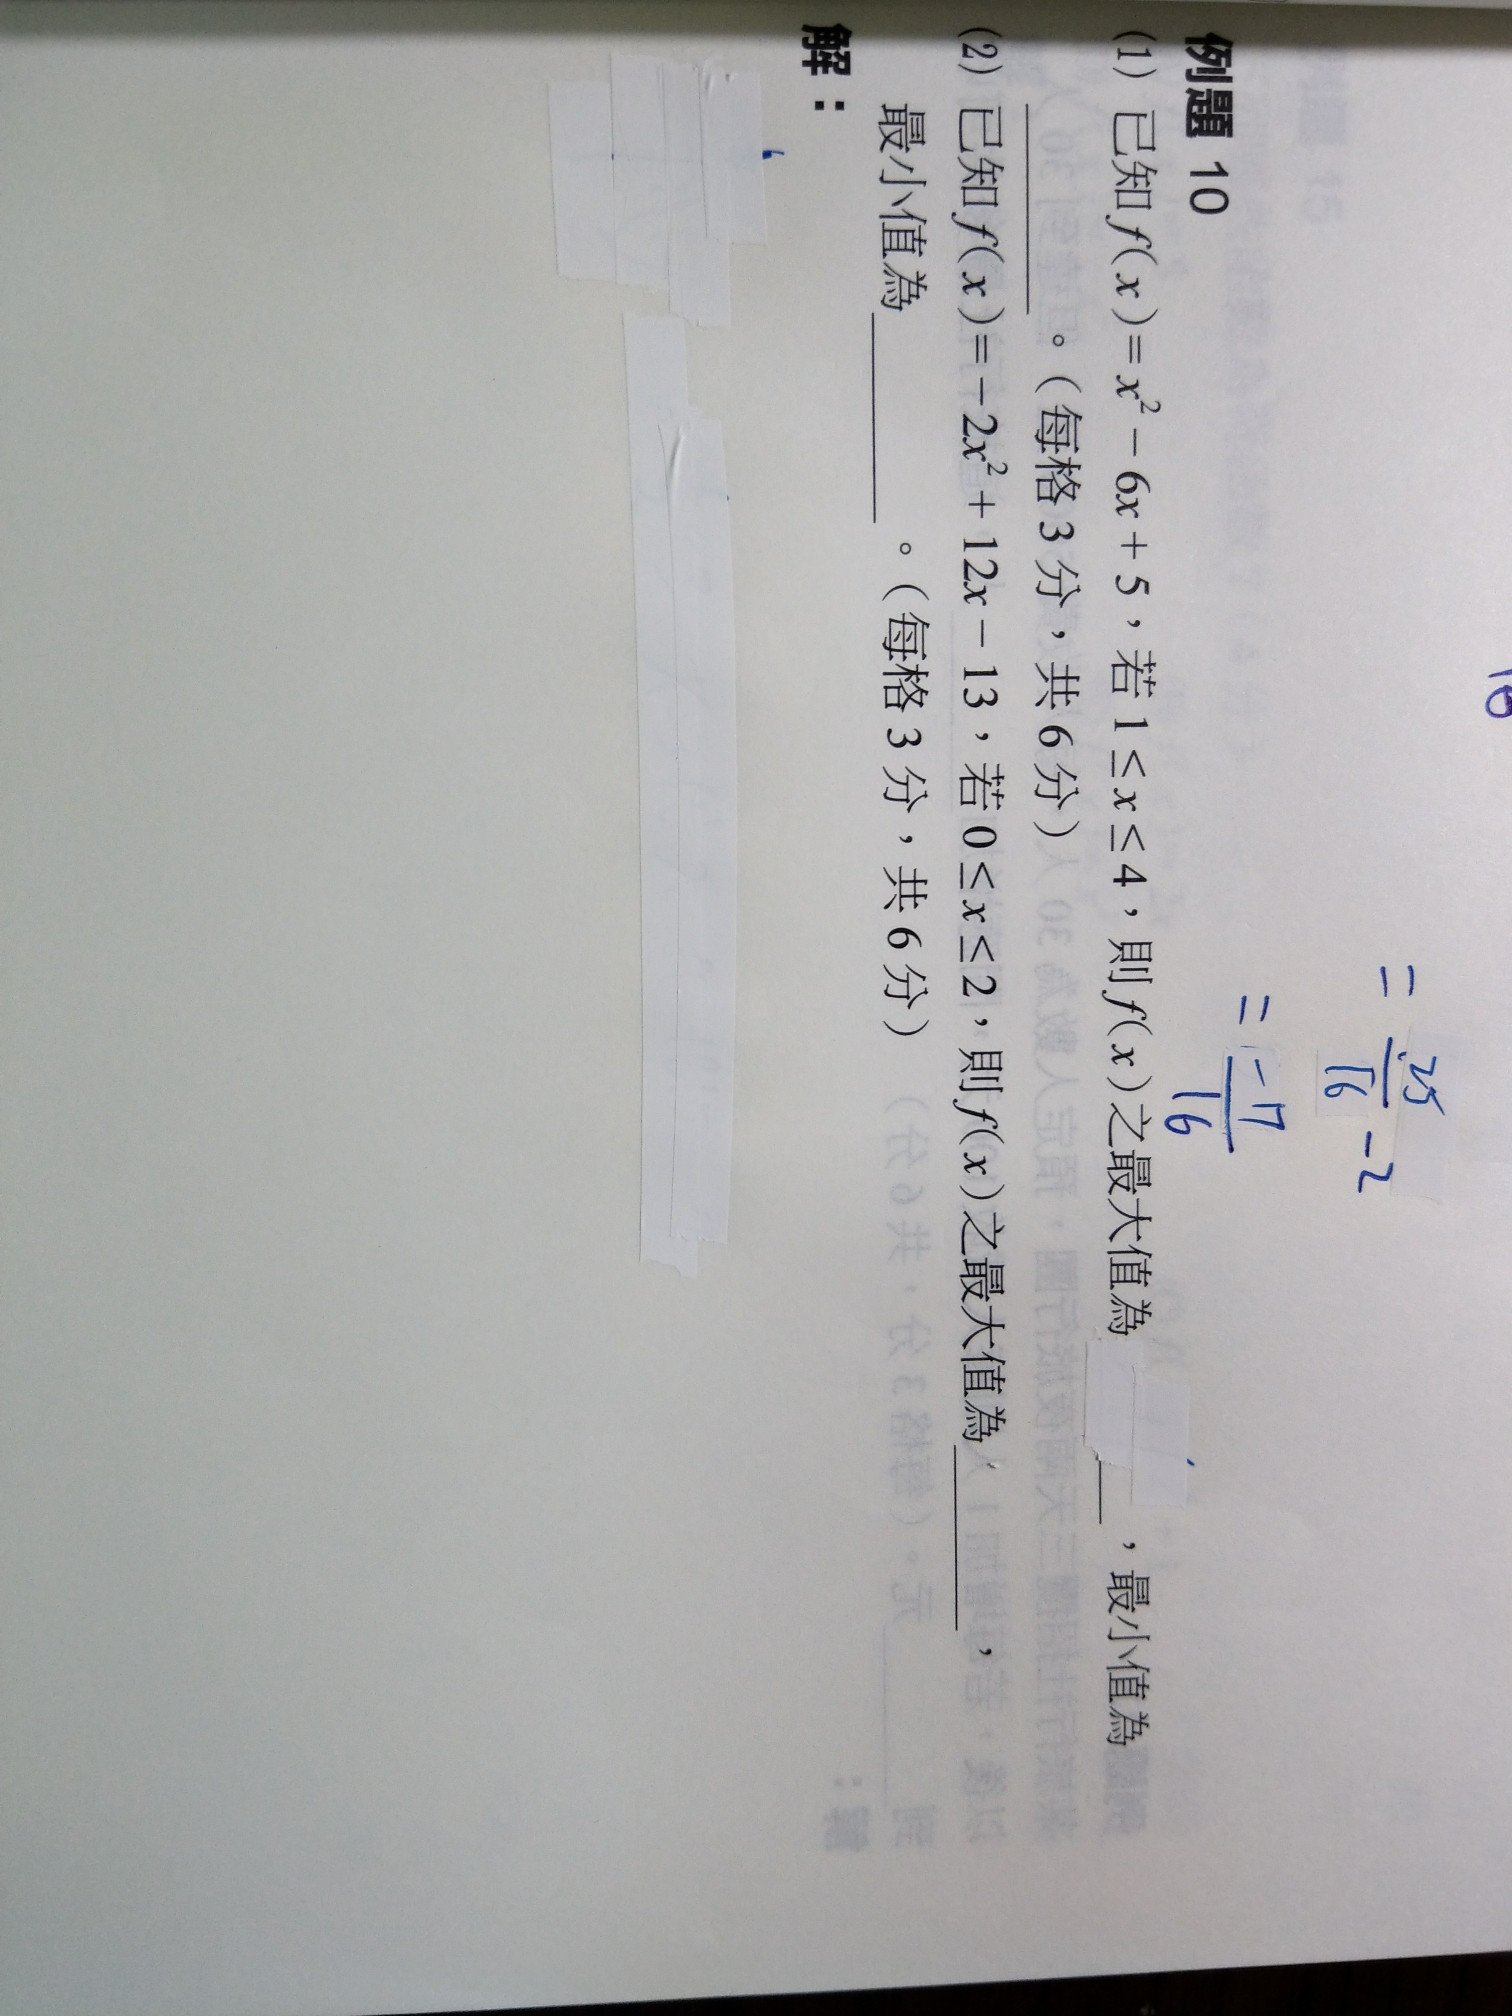 10
= 25/16 - 2
= -17/16
例題 10
(1) 已知 f(x)=x²-6x+5，若1≤x≤4，則f(x)之最大值為＿＿，最小值為
＿＿＿＿。(每格3分，共6分)
(2) 已知f(x)=-2x²+12x-13，若0≤x≤2，則f(x)之最大值為＿＿＿＿，
最小值為＿＿＿＿。(每格3分，共6分)
解：